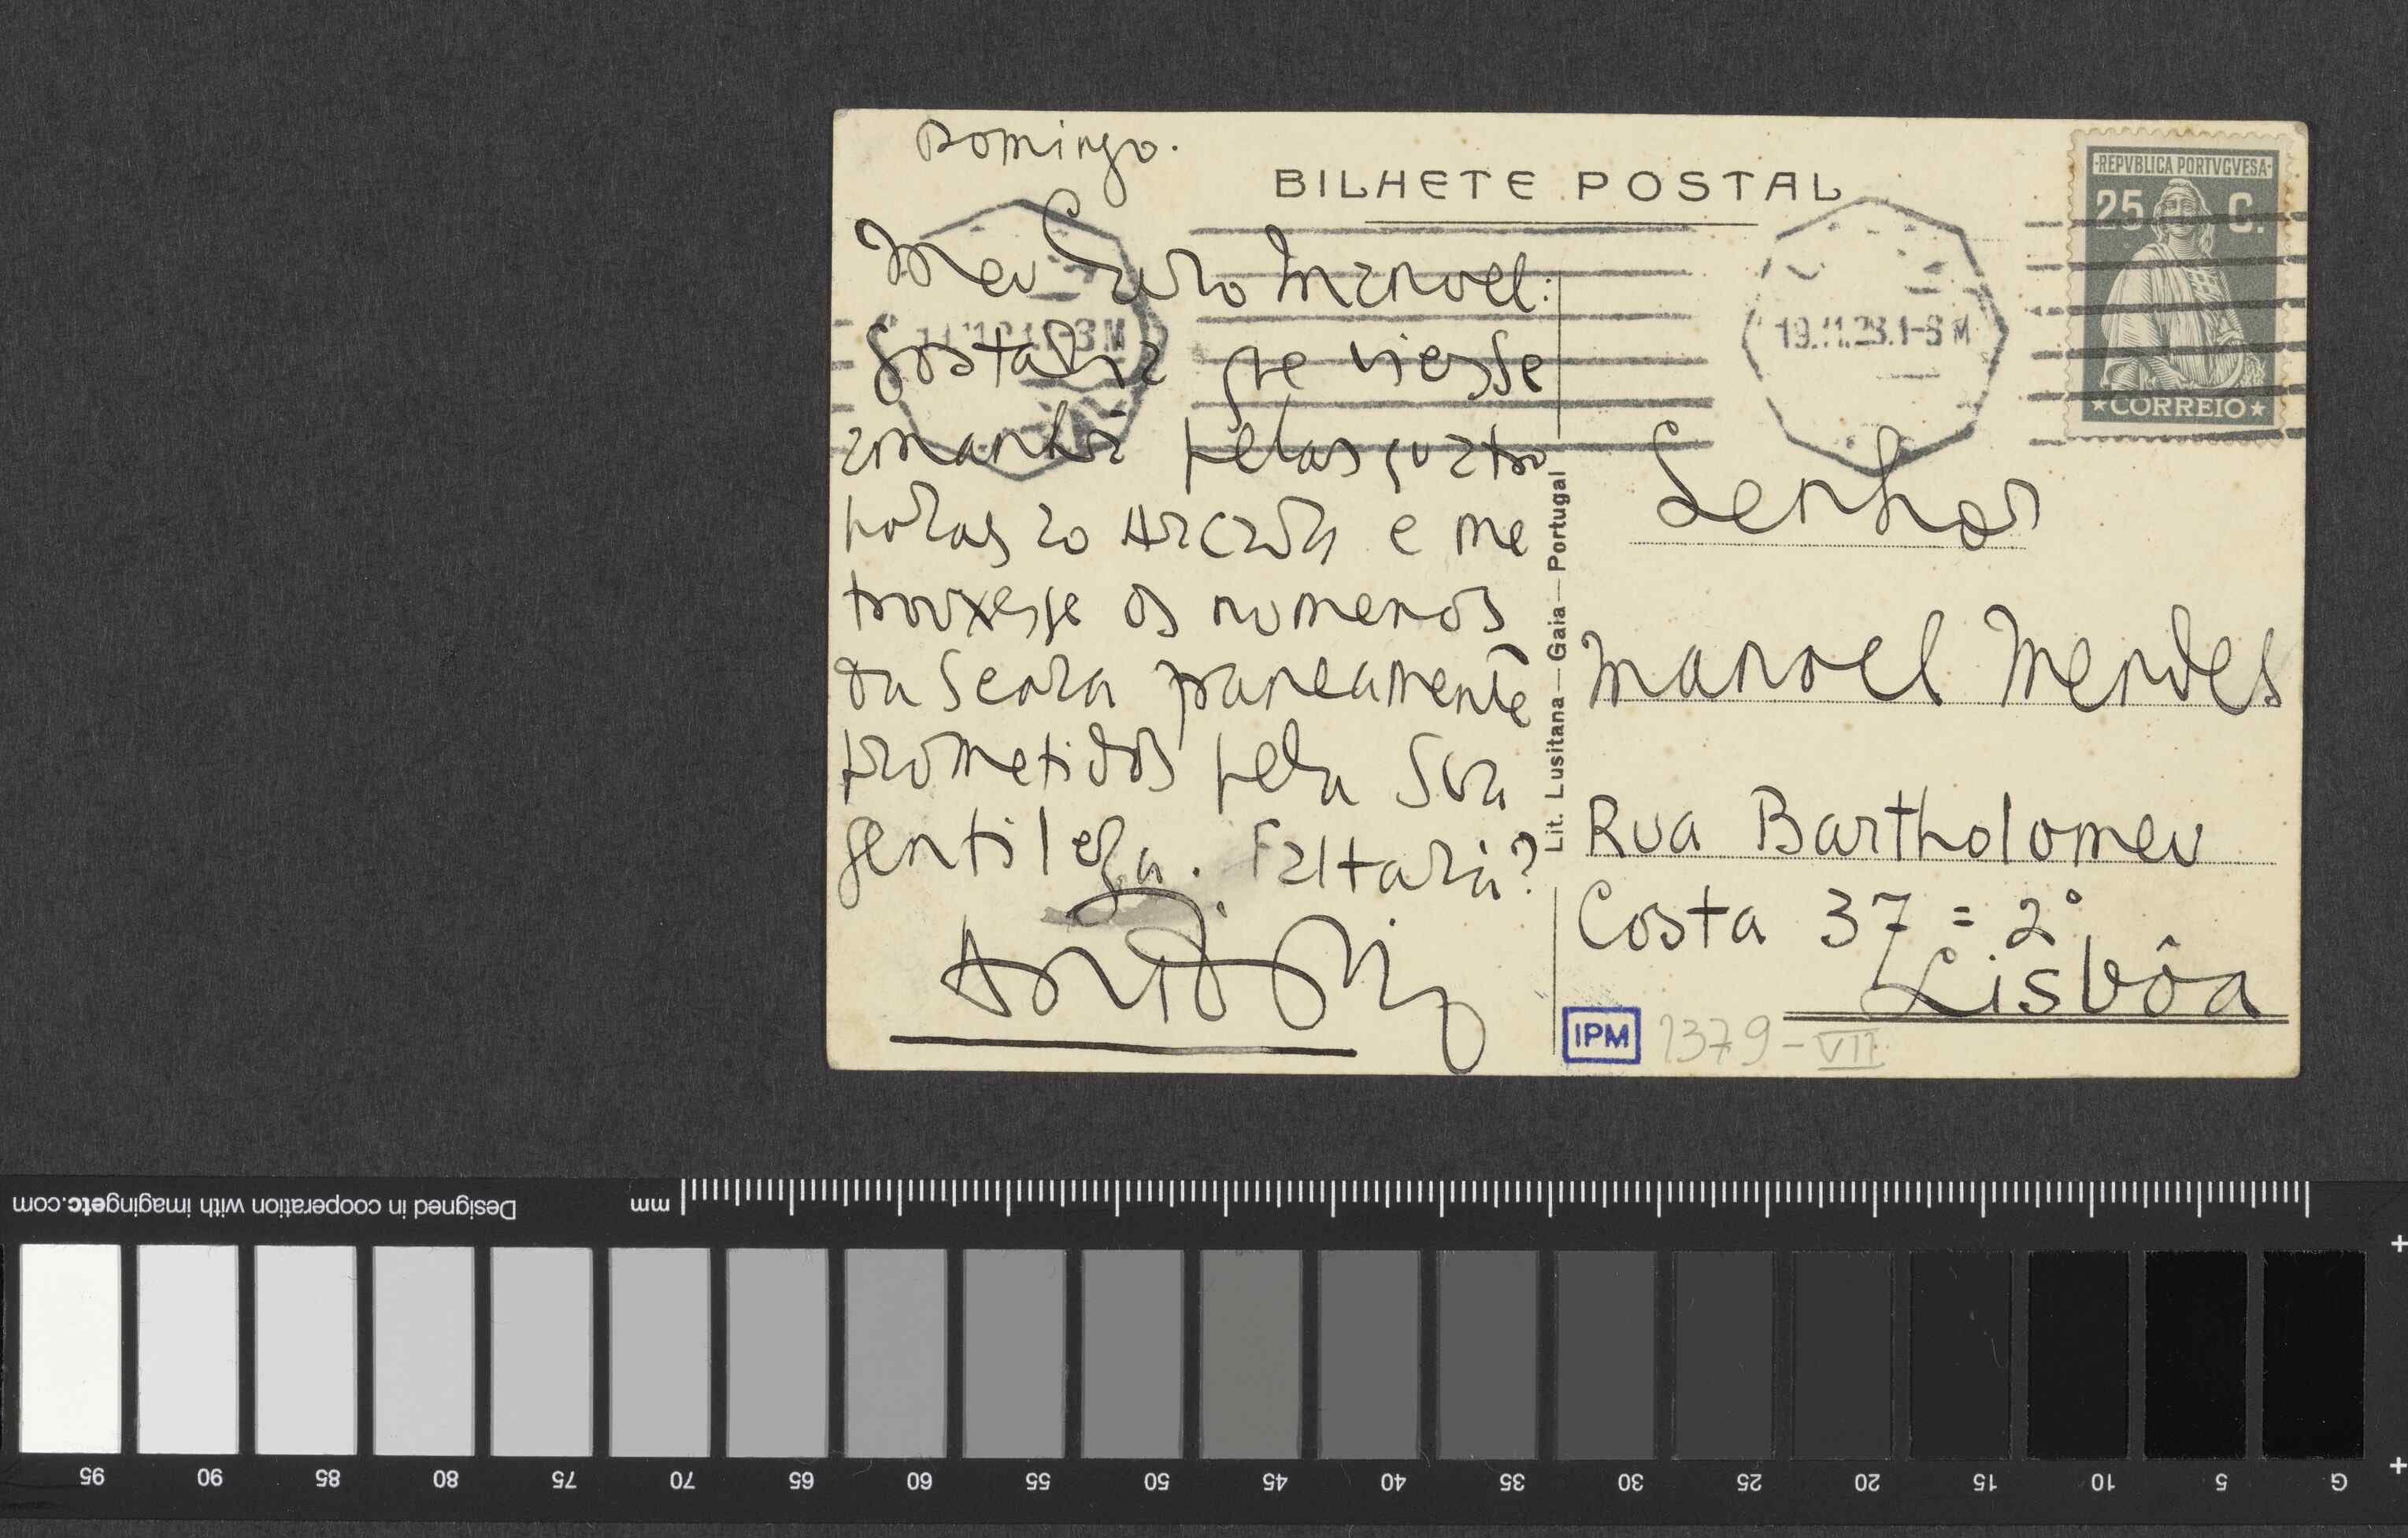 Domingo.
BILHETE POSTAL
Meu Caro Manoel:
Gostaria que viesse
amanhã pelas quatro
horas ao Arcada e me
trouxesse os numeros
da Seara
prometidos pela Sua
gentileza. Faltará?
19.11.28.1-3 M
REPVBLICA PORTVGVESA
25 C.
★CORREIO★
Lit. Lusitana — Gaia — Portugal
Senhor
Manoel Mendes
Rua Bartholomeu
Costa 37 = 2º
Lisbôa
IPM 1379-VII
Designed in cooperation with imagingetc.com
mm
95 90 85 80 75 70 65 60 55 50 45 40 35 30 25 20 15 10 5 G